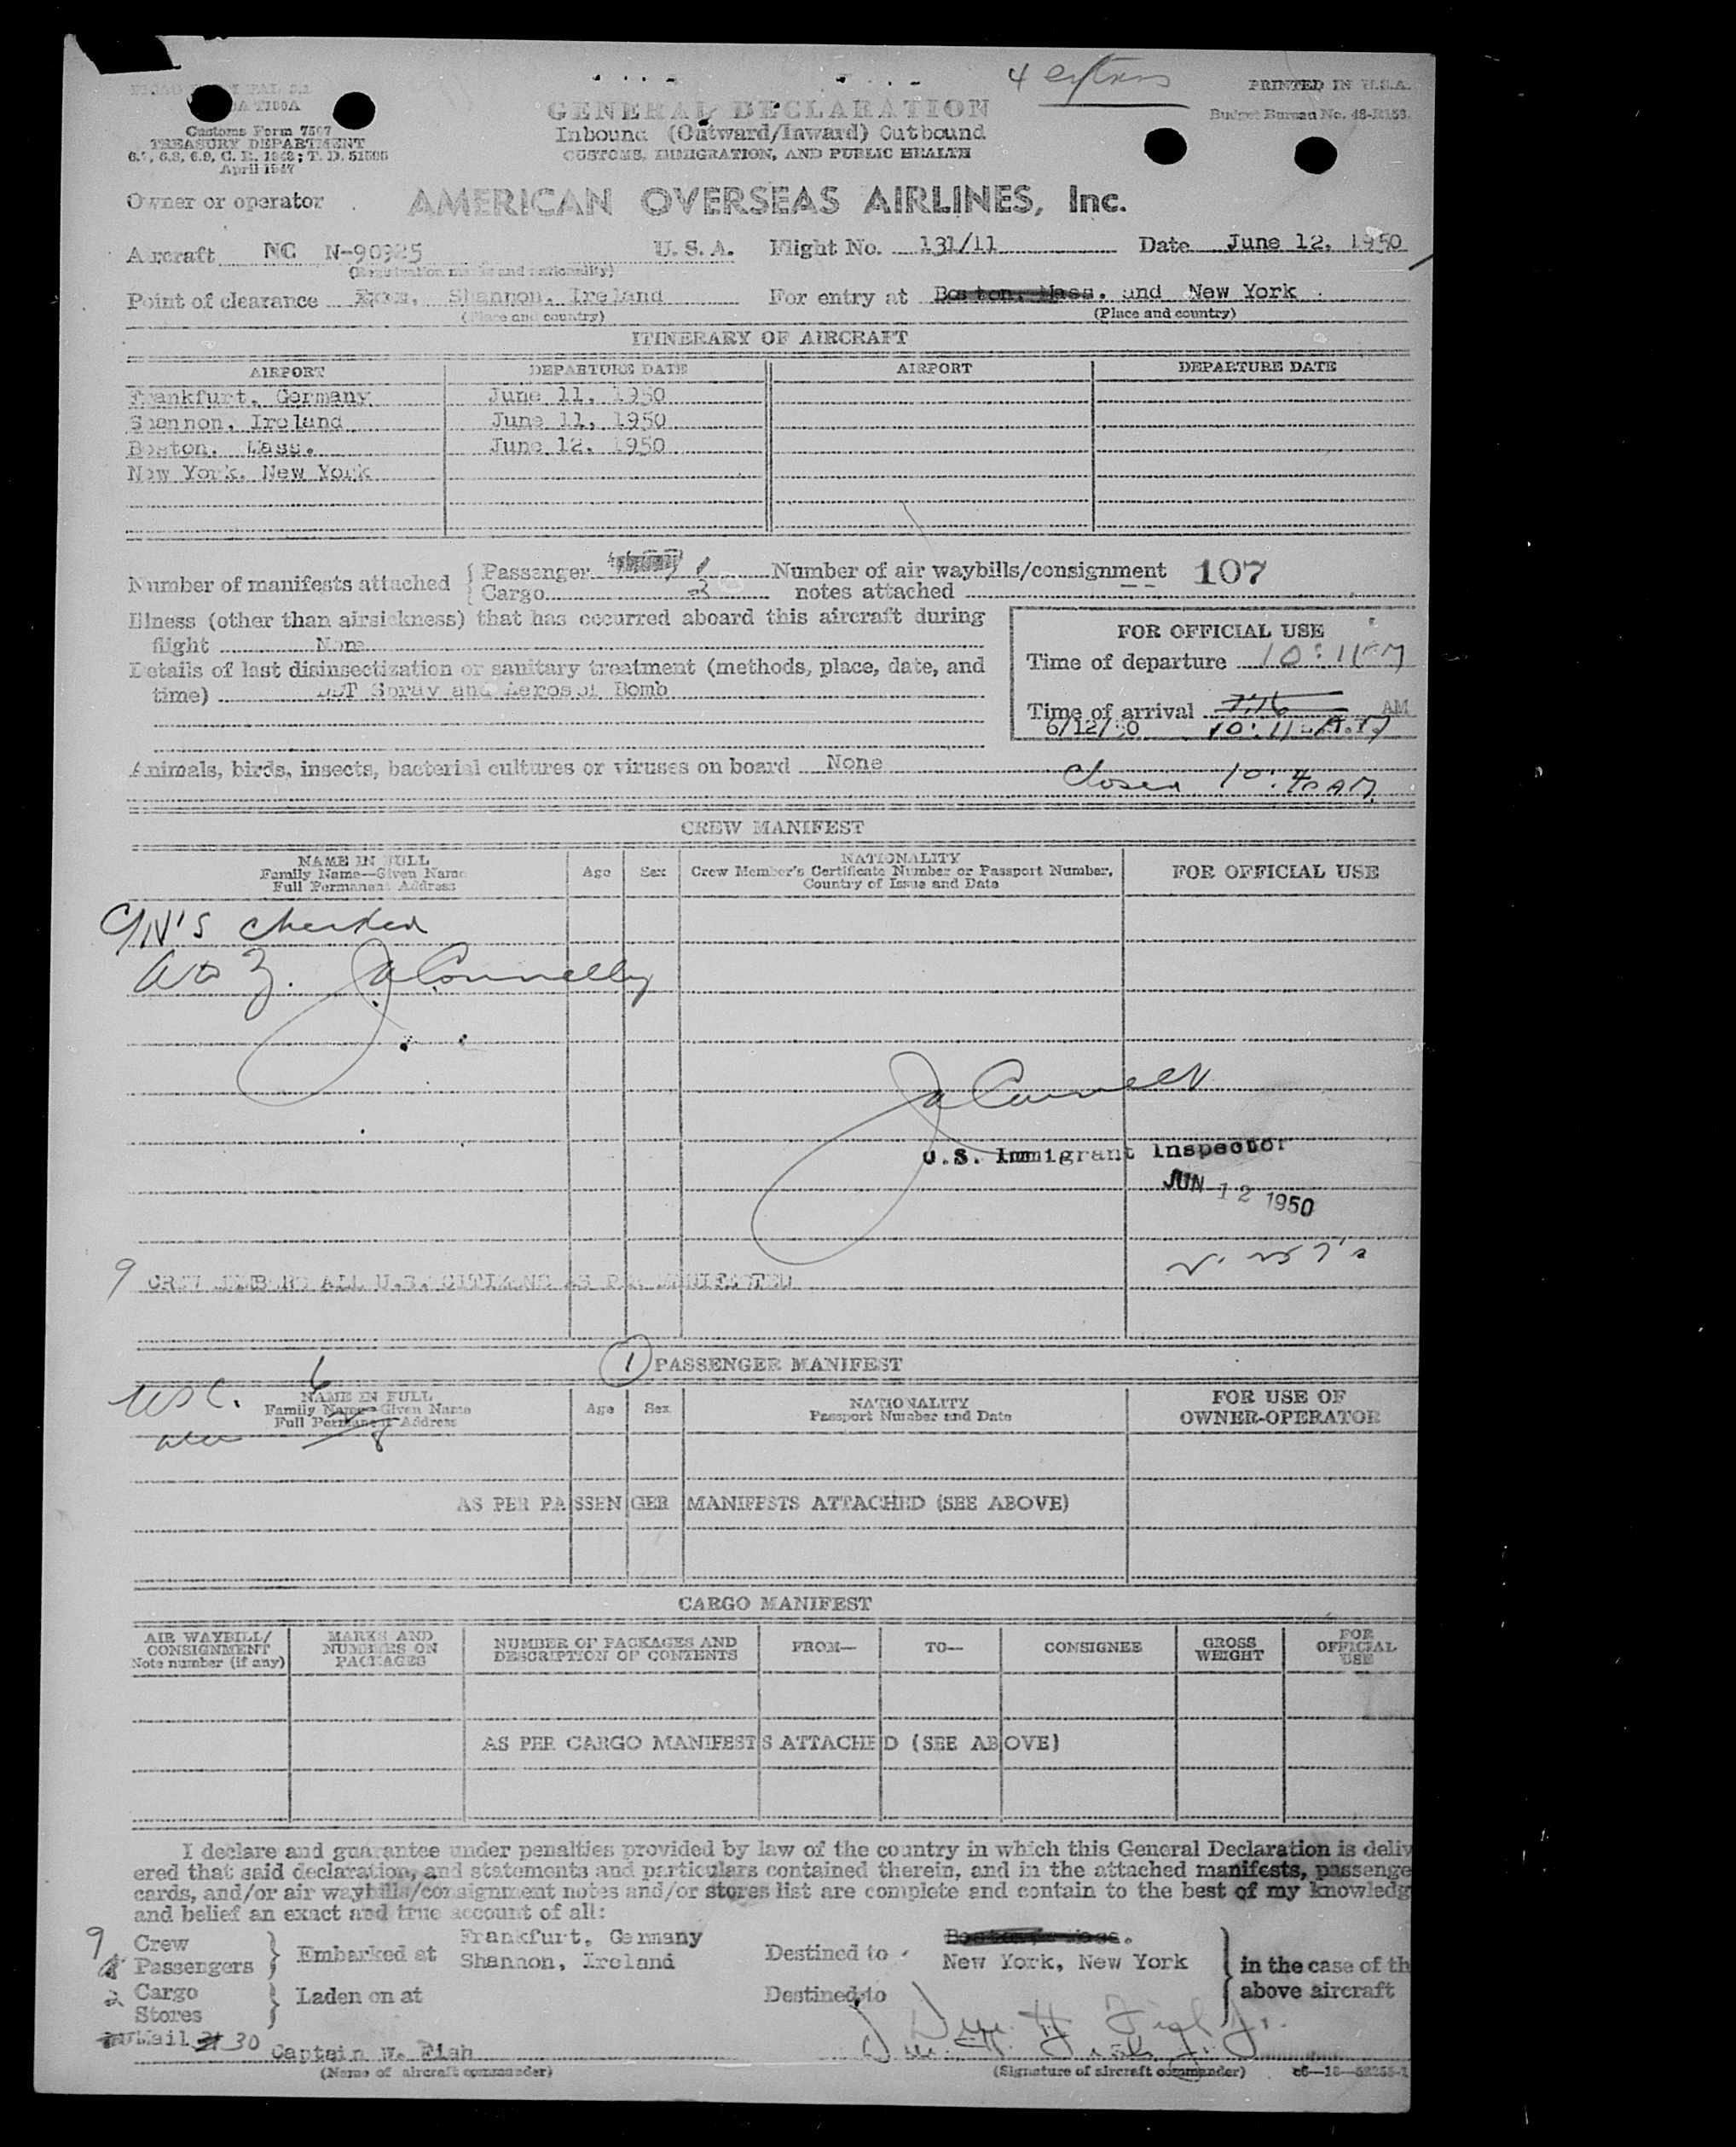 4 extras
PRINTED IN U.S.A.
Customs Form 7507
TREASURY DEPARTMENT
April 1947
Budget Bureau No. 48-R158.
GENERAL DECLARATION
Inbound (Outward/Inward) Outbound
CUSTOMS, IMMIGRATION, AND PUBLIC HEALTH
Owner or operator AMERICAN OVERSEAS AIRLINES, Inc.
Aircraft NC N-90925 U.S.A. Flight No. 131/11 Date June 12, 1950
(Registration marks and nationality)
Point of clearance Shannon, Ireland For entry at Boston, Mass. and New York
(Place and country) (Place and country)
ITINERARY OF AIRCRAFT
AIRPORT DEPARTURE DATE AIRPORT DEPARTURE DATE
Frankfurt, Germany June 11, 1950
Shannon, Ireland June 11, 1950
Boston, Mass. June 12, 1950
New York, New York
Number of manifests attached { Passenger 1 Number of air waybills/consignment 107
Cargo notes attached --
Illness (other than airsickness) that has occurred aboard this aircraft during
flight None
Details of last disinsectization or sanitary treatment (methods, place, date, and
time) DDT Spray and Aerosol Bomb
FOR OFFICIAL USE
Time of departure
Time of arrival AM
6/12/50
Animals, birds, insects, bacterial cultures or viruses on board None
Closed 10:40 AM
CREW MANIFEST
NAME IN FULL
Family Name—Given Name
Full Permanent Address
Age Sex
NATIONALITY
Crew Member's Certificate Number or Passport Number,
Country of Issue and Date
FOR OFFICIAL USE
checked
U.S. Immigrant Inspector
JUN 12 1950
9 CREW MEMBERS ALL U.S. CITIZENS AS PER MANIFESTED
1 PASSENGER MANIFEST
USC. 6
NAME IN FULL
Family Name—Given Name
Full Permanent Address
Age Sex
NATIONALITY
Passport Number and Date
FOR USE OF
OWNER-OPERATOR
AS PER PASSENGER MANIFESTS ATTACHED (SEE ABOVE)
CARGO MANIFEST
AIR WAYBILL/
CONSIGNMENT
Note number (if any)
MARKS AND
NUMBERS ON
PACKAGES
NUMBER OF PACKAGES AND
DESCRIPTION OF CONTENTS
FROM— TO— CONSIGNEE
GROSS
WEIGHT
FOR
OFFICIAL
USE
AS PER CARGO MANIFESTS ATTACHED (SEE ABOVE)
I declare and guarantee under penalties provided by law of the country in which this General Declaration is deliv
ered that said declaration, and statements and particulars contained therein, and in the attached manifests, passenge
cards, and/or air waybills/consignment notes and/or stores list are complete and contain to the best of my knowledg
and belief an exact and true account of all:
9 Crew
Passengers } Embarked at Frankfurt, Germany
Shannon, Ireland
Destined to New York, New York
in the case of th
above aircraft
2 Cargo
Stores } Laden on at Destined to
Mail 30
Captain W. Fish
(Name of aircraft commander) (Signature of aircraft commander)